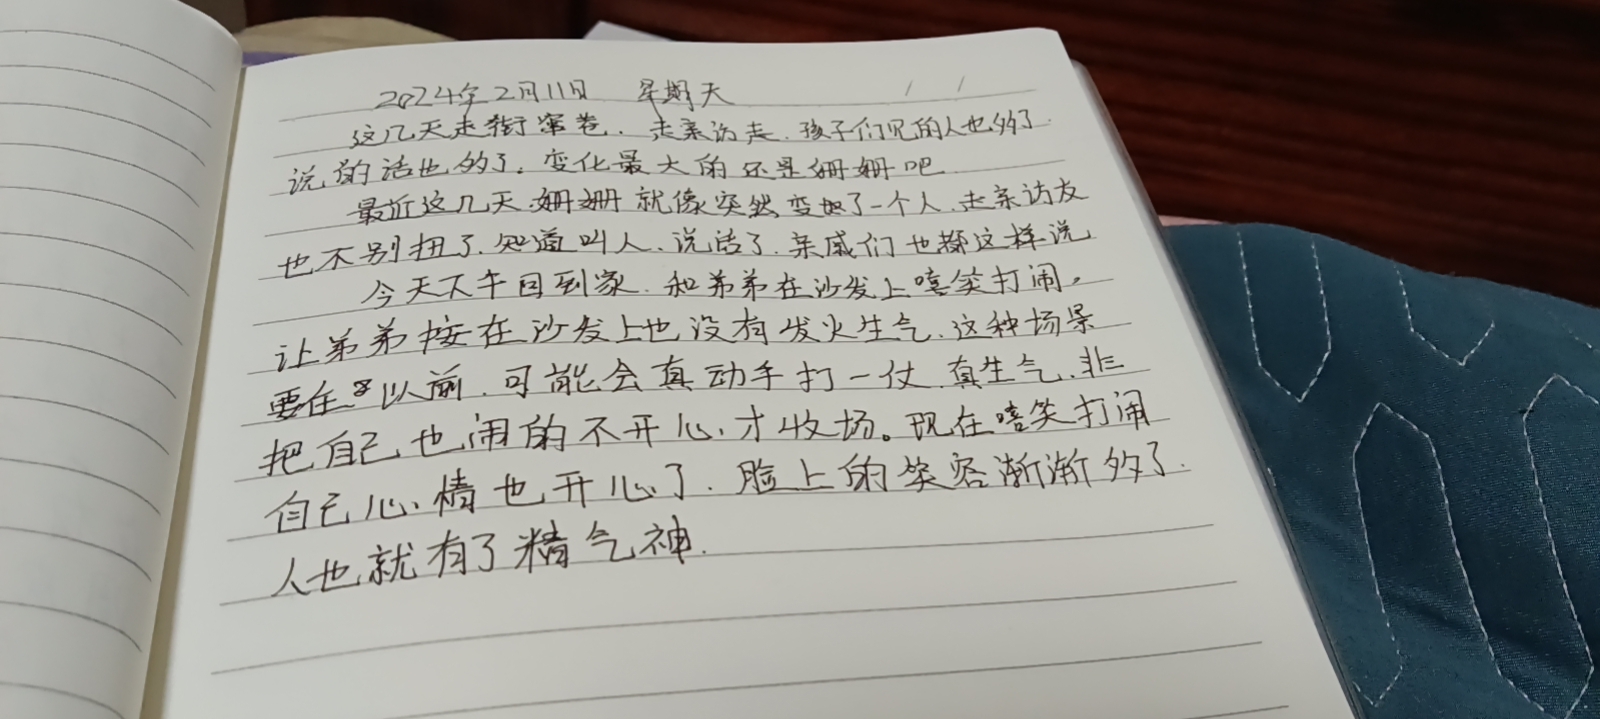 2024年2月11日 星期天
这几天走街窜巷.走亲访友.孩子们见的人也多了
说的话也多了。变化最大的还是姗姗吧
最近这几天姗姗就像突然变如了一个人.走亲访友
也不别扭了.知道叫人.说话了.亲戚们也都这样说
今天下午回到家.和弟弟在沙发上嘻笑打闹。
让弟弟按在沙发上也没有发火生气.这种场景
要在以前.可能会真动手打一仗.真生气.非
把自己也闹的不开心.才收场。现在嘻笑打闹
自己心情也开心了.脸上的笑容渐渐多了.
人也就有了精气神.